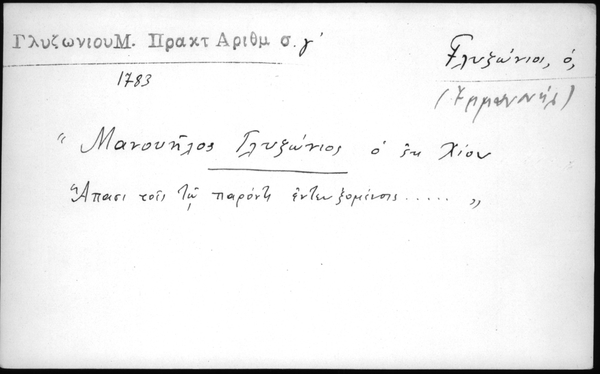 Γλυζωνιου Μ. Πρακτ Αριθμ σ. γ'
1783
Γλυζώνιος, ὁ,
(Ἐμμανουήλ)
“ Μανουῆλος Γλυζώνιος ὁ ἐκ Χίου
Ἅπασι τοῖς τῷ παρόντι ἐντευξομένοις ..... „